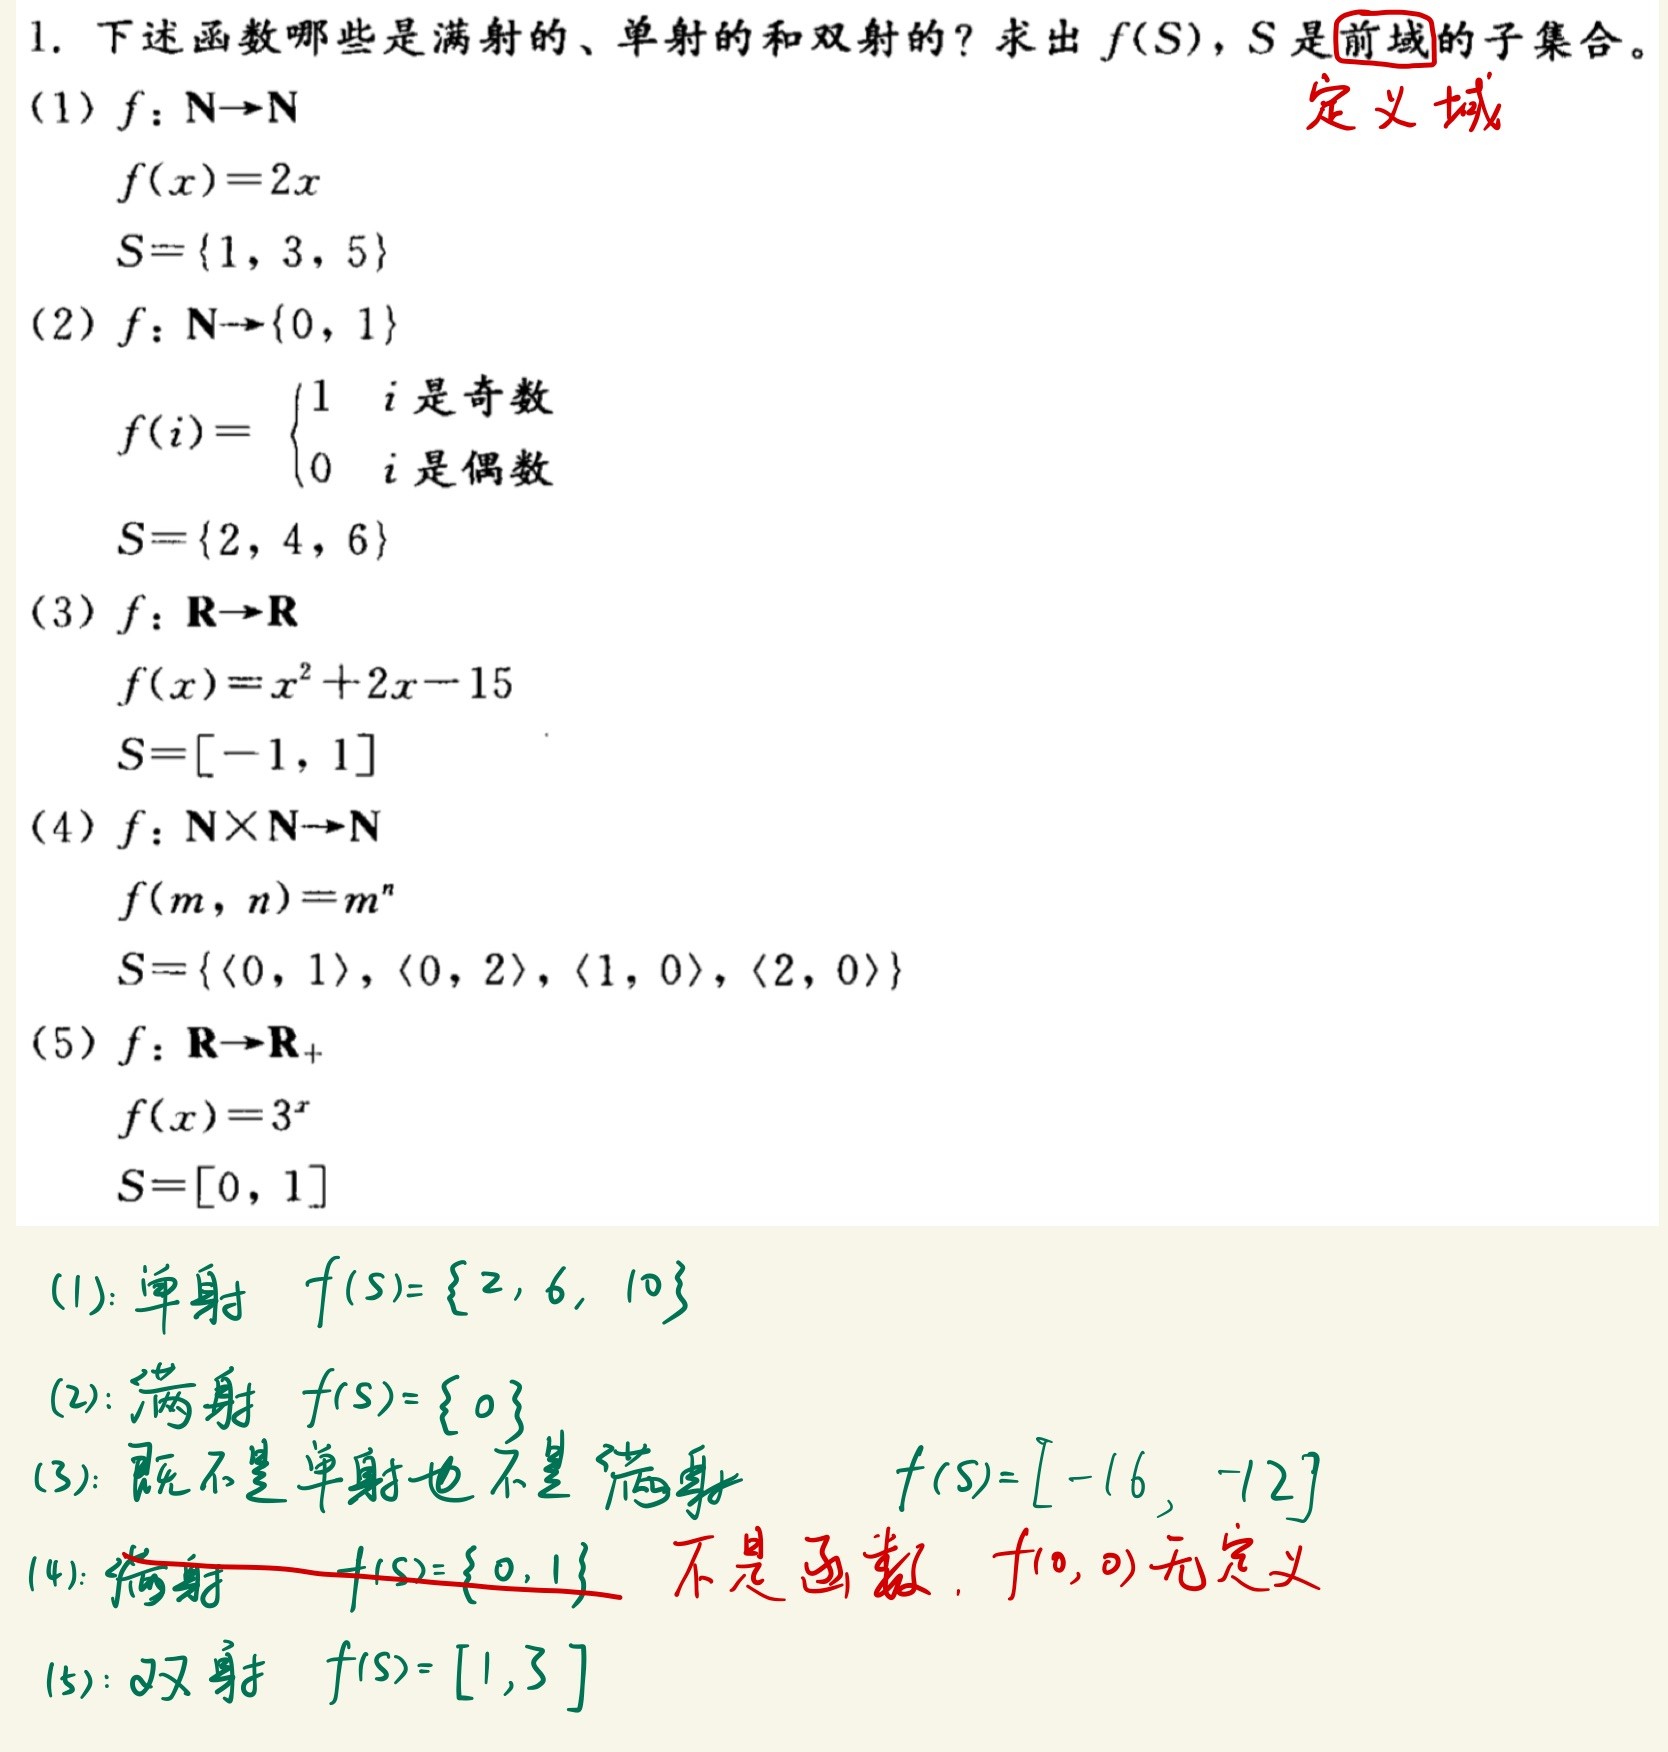 1. 下述函数哪些是满射的、单射的和双射的？求出 f(S)，S 是前域的子集合。
定义域
(1) f：N→N
f(x)=2x
S={1，3，5}
(2) f：N→{0，1}
f(i)= {1 i 是奇数
0 i 是偶数
S={2，4，6}
(3) f：R→R
f(x)=x²+2x−15
S=[−1，1]
(4) f：N×N→N
f(m，n)=mⁿ
S={⟨0，1⟩，⟨0，2⟩，⟨1，0⟩，⟨2，0⟩}
(5) f：R→R₊
f(x)=3ˣ
S=[0，1]
(1): 单射 f(S)={2, 6, 10}
(2): 满射 f(S)={0}
(3): 既不是单射也不是满射 f(S)=[-16, -12]
(4): 满射 f(S)={0,1} 不是函数. f(0,0)无定义
(5): 双射 f(S)=[1,3]